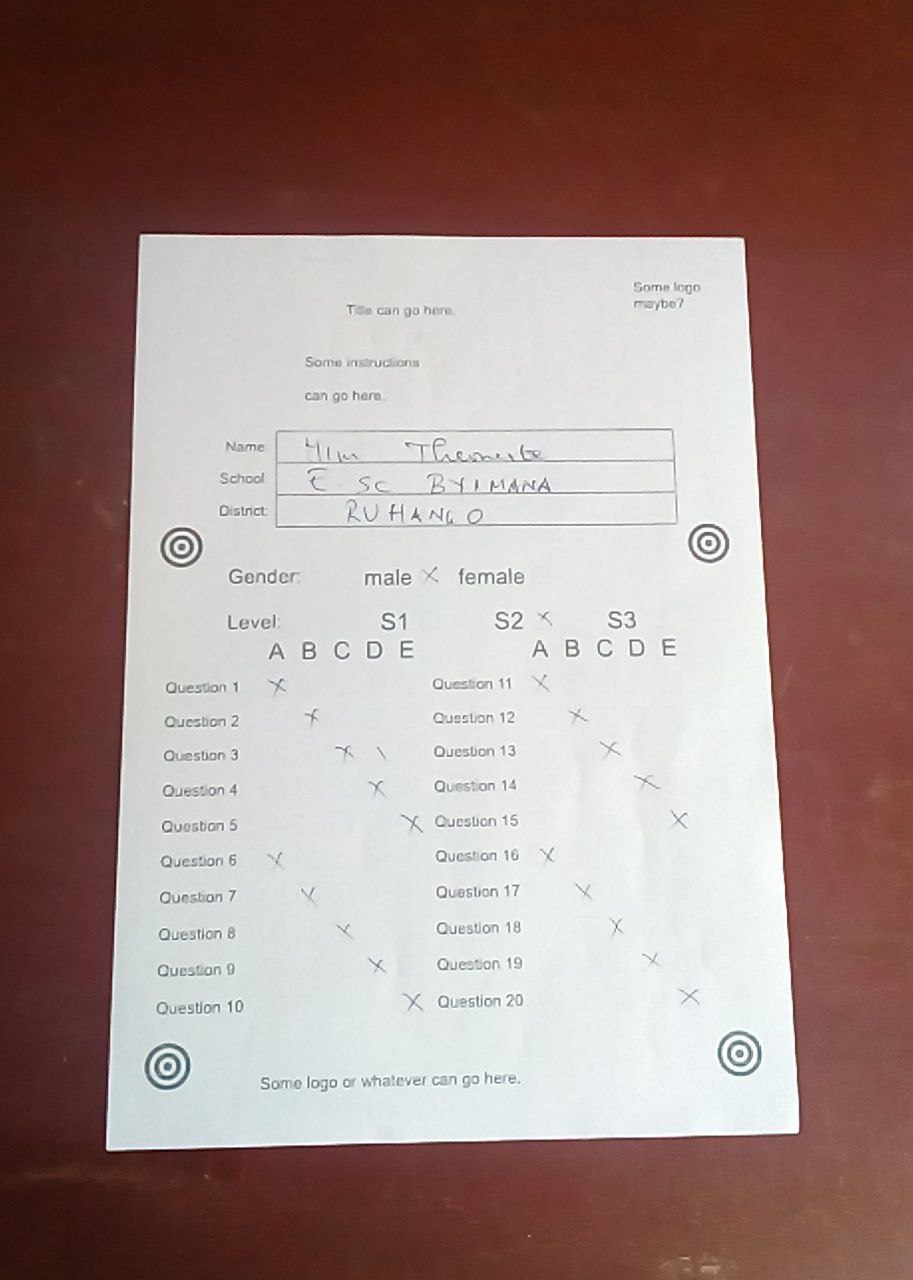 Some logo
maybe?
Title can go here.
Some instructions
can go here.
Name:
School: E SC BYIMANA
District: RUHANGO
Gender: male X female
Level: S1 S2 X S3
A B C D E A B C D E
Question 1 X Question 11 X
Question 2 X Question 12 X
Question 3 X \ Question 13 X
Question 4 X Question 14 X
Question 5 X Question 15 X
Question 6 X Question 16 X
Question 7 X Question 17 X
Question 8 X Question 18 X
Question 9 X Question 19 X
Question 10 X Question 20 X
Some logo or whatever can go here.